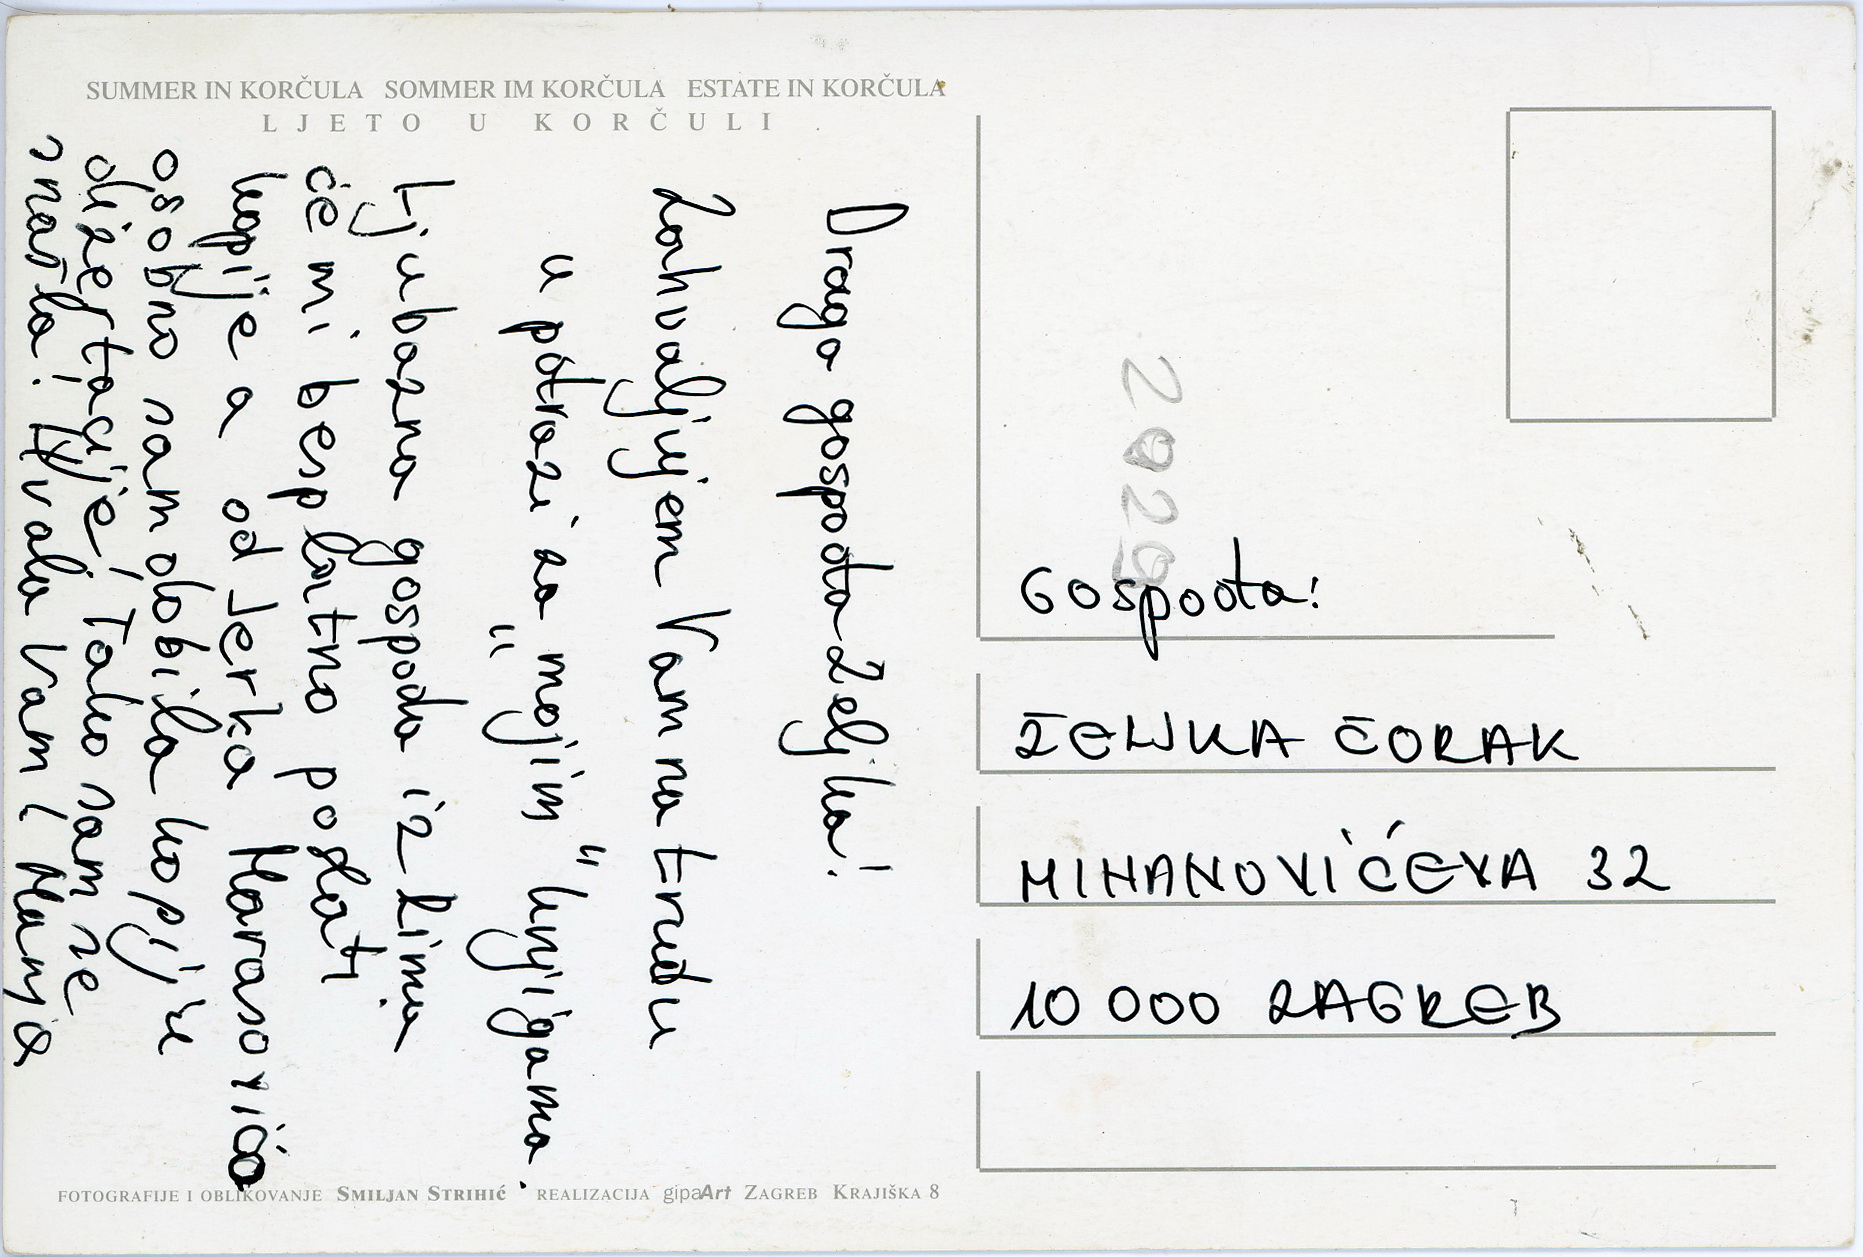 SUMMER IN KORČULA SOMMER IM KORČULA ESTATE IN KORČULA
LJETO U KORČULI
Draga gospođa Željka!
Zahvaljujem Vam na trudu
u potrazi za "mojim" knjigama.
Ljubazna gospođa iz Lima
će mi besplatno poslati
kopije a od Jerka Marasovića
osobno sam dobila kopiju
dizertacije! Tako sam se
snašla! Hvala Vam! Manja
2029
Gospođa!
ŽELJKA ČORAK
MIHANOVIĆEVA 32
10 000 ZAGREB
FOTOGRAFIJE I OBLIKOVANJE SMILJAN STRIHIĆ REALIZACIJA gipaArt ZAGREB KRAJIŠKA 8